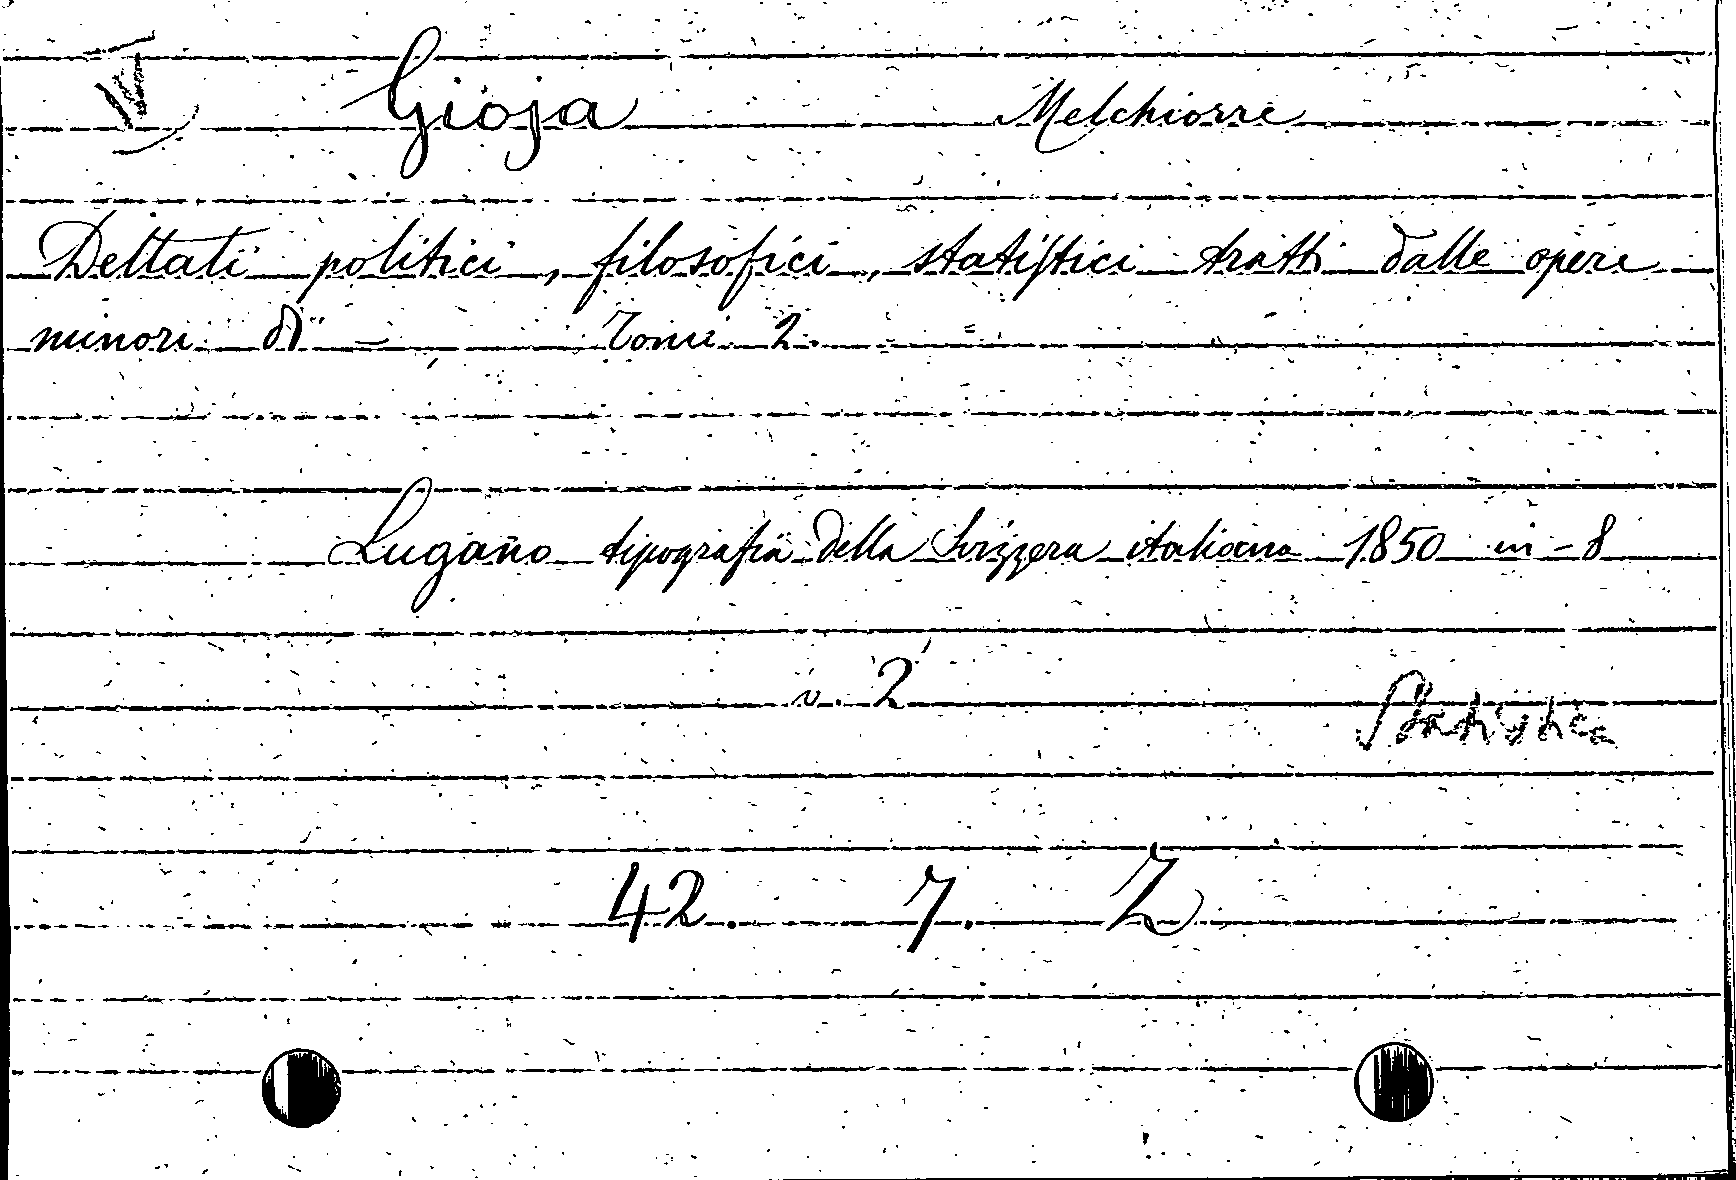 IV Gioja Melchiorre
Dettati politici, filosofici, statistici tratti dalle opere
minori di — Tomi 2.
Lugano tipografia della Svizzera italiana 1850 in-8
v. 2
Statistica
42. 7. Z